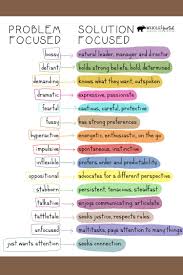 PROBLEM FOCUSED SOLUTION FOCUSED
bossy natural leader, manager and director
defiant holds strong beliefs, bold, determined
demanding knows what they want, outspoken
dramatic expressive, passionate
fearful cautious, careful, protective
fussy has strong preferences
hyperactive energetic, enthusiastic, on the go
impulsive spontaneous, instinctive
inflexible prefers order and predictability
oppositional advocates for a different perspective
stubborn persistent, tenacious, steadfast
talkative enjoys communicating, articulate
tattletale seeks justice, respects rules
unfocused multitasks, pays attention to many things
just wants attention seeks connection